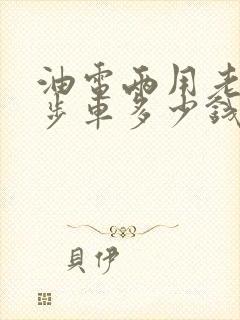 油電兩用老
步車多少錢
貝伊